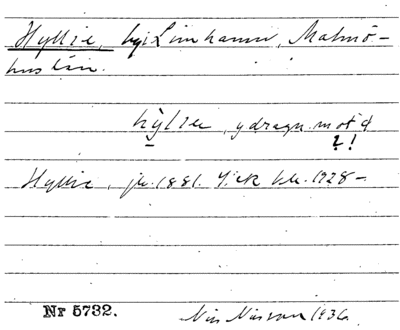 Hyllie, by i Limhamn, Malmö-
hus län.
hỳlιe, y dragn. mot ø
? !
Hyllie, jb. 1881. Y. ck 1928-
Nr 5732. Nils Nilsson 1936.